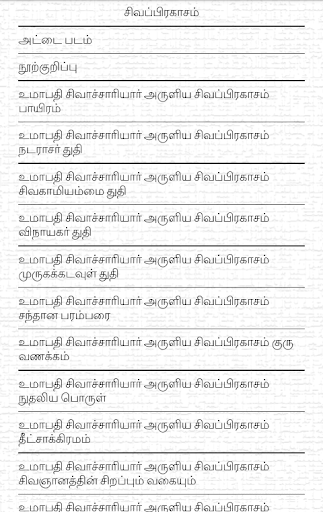 சிவப்பிரகாசம்
அட்டை படம்
நூற்குறிப்பு
உமாபதி சிவாச்சாரியார் அருளிய சிவப்பிரகாசம்
பாயிரம்
உமாபதி சிவாச்சாரியார் அருளிய சிவப்பிரகாசம்
நடராசர் துதி
உமாபதி சிவாச்சாரியார் அருளிய சிவப்பிரகாசம்
சிவகாமியம்மை துதி
உமாபதி சிவாச்சாரியார் அருளிய சிவப்பிரகாசம்
விநாயகர் துதி
உமாபதி சிவாச்சாரியார் அருளிய சிவப்பிரகாசம்
முருகக்கடவுள் துதி
உமாபதி சிவாச்சாரியார் அருளிய சிவப்பிரகாசம்
சந்தான பரம்பரை
உமாபதி சிவாச்சாரியார் அருளிய சிவப்பிரகாசம் குரு
வணக்கம்
உமாபதி சிவாச்சாரியார் அருளிய சிவப்பிரகாசம்
நுதலிய பொருள்
உமாபதி சிவாச்சாரியார் அருளிய சிவப்பிரகாசம்
தீட்சாக்கிரமம்
உமாபதி சிவாச்சாரியார் அருளிய சிவப்பிரகாசம்
சிவஞானத்தின் சிறப்பும் வகையும்
உமாபதி சிவாச்சாரியார் அருளிய சிவப்பிரகாசம்